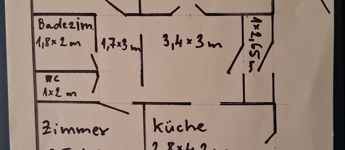 Badezim.
1,8x2 m
1,7x3 m
3,4 x 3 m
1x2,65 m
WC
1x2 m
Zimmer
Küche